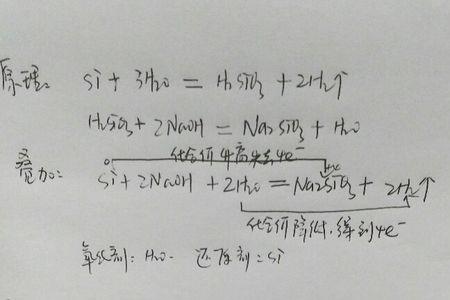 原理: Si + 3H2O = H2SiO3 + 2H2↑
H2SiO3 + 2NaOH = Na2SiO3 + H2O
化合价升高失去4e⁻
叠加: 0 +4
Si + 2NaOH + 2H2O = Na2SiO3 + 2H2↑
化合价降低,得到4e⁻
氧化剂: H2O 还原剂: Si